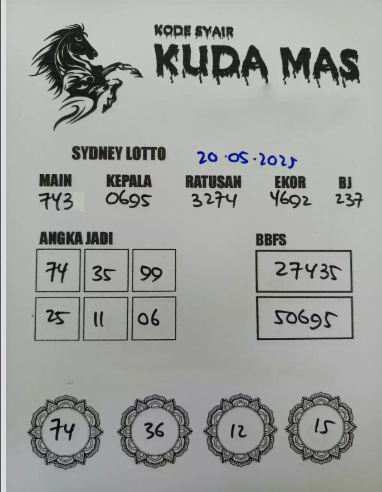 KODE SYAIR
KUDA MAS
SYDNEY LOTTO 20.05.2025
MAIN KEPALA RATUSAN EKOR BJ
743 0695 3274 4692 237
ANGKA JADI BBFS
74 35 99 27435
25 11 06 50695
74 36 12 15